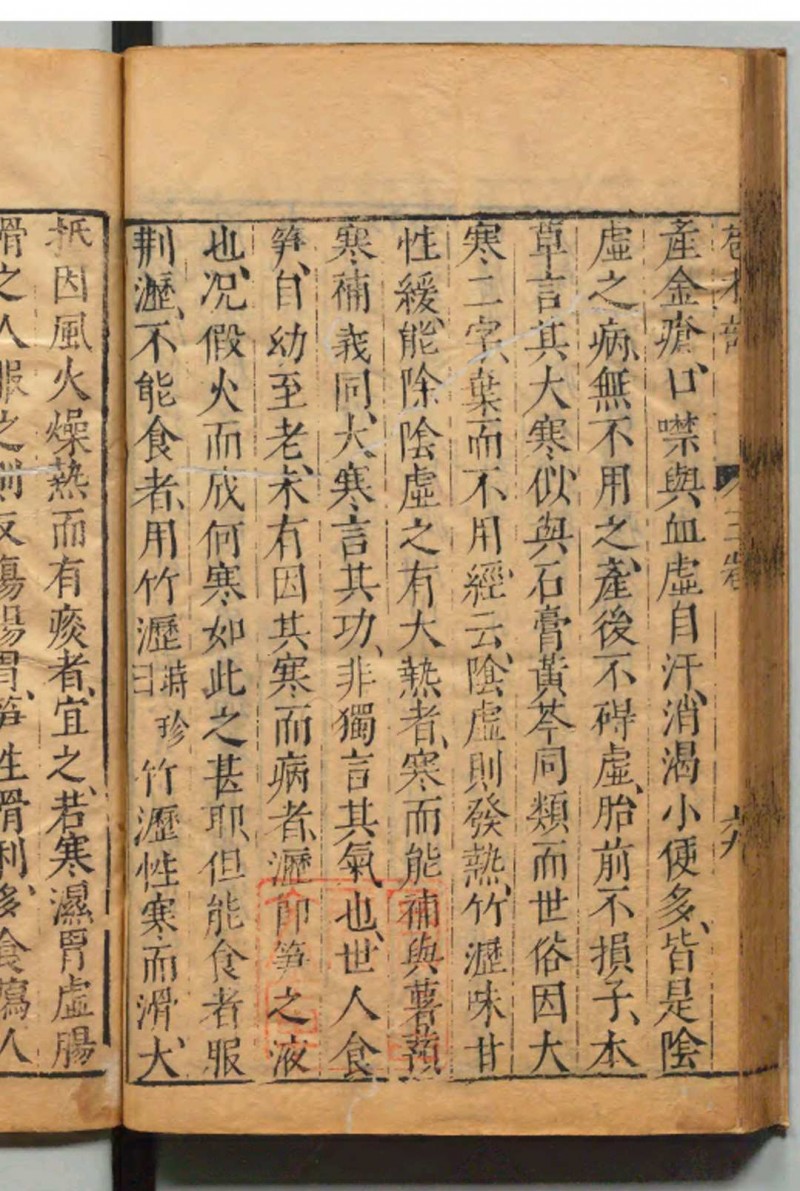 產金瘡、口噤與血虛自汗、消渴小便多、皆是陰
虛之病、無不用之、產後不碍虛、胎前不損子、本
草言其大寒似與石膏黃芩同類而世俗因大
寒二字、棄而不用經云、陰虛則發熱、竹瀝味甘
性緩、能除陰虛之有大熱者、寒而能補與薯蕷
寒補義同、大寒言其功、非獨言其氣也、世人食
笋、自幼至老、未有因其寒而病者、瀝即笋之液
也、况假火而成何寒如此之甚耶、但能食者服
荆瀝、不能食者、用竹瀝時珍曰竹瀝性寒而滑、大
抵因風火燥熱而有痰者、宜之、若寒濕胃虛腸
滑之人服之則反傷腸胃、笋性滑利、多食瀉人